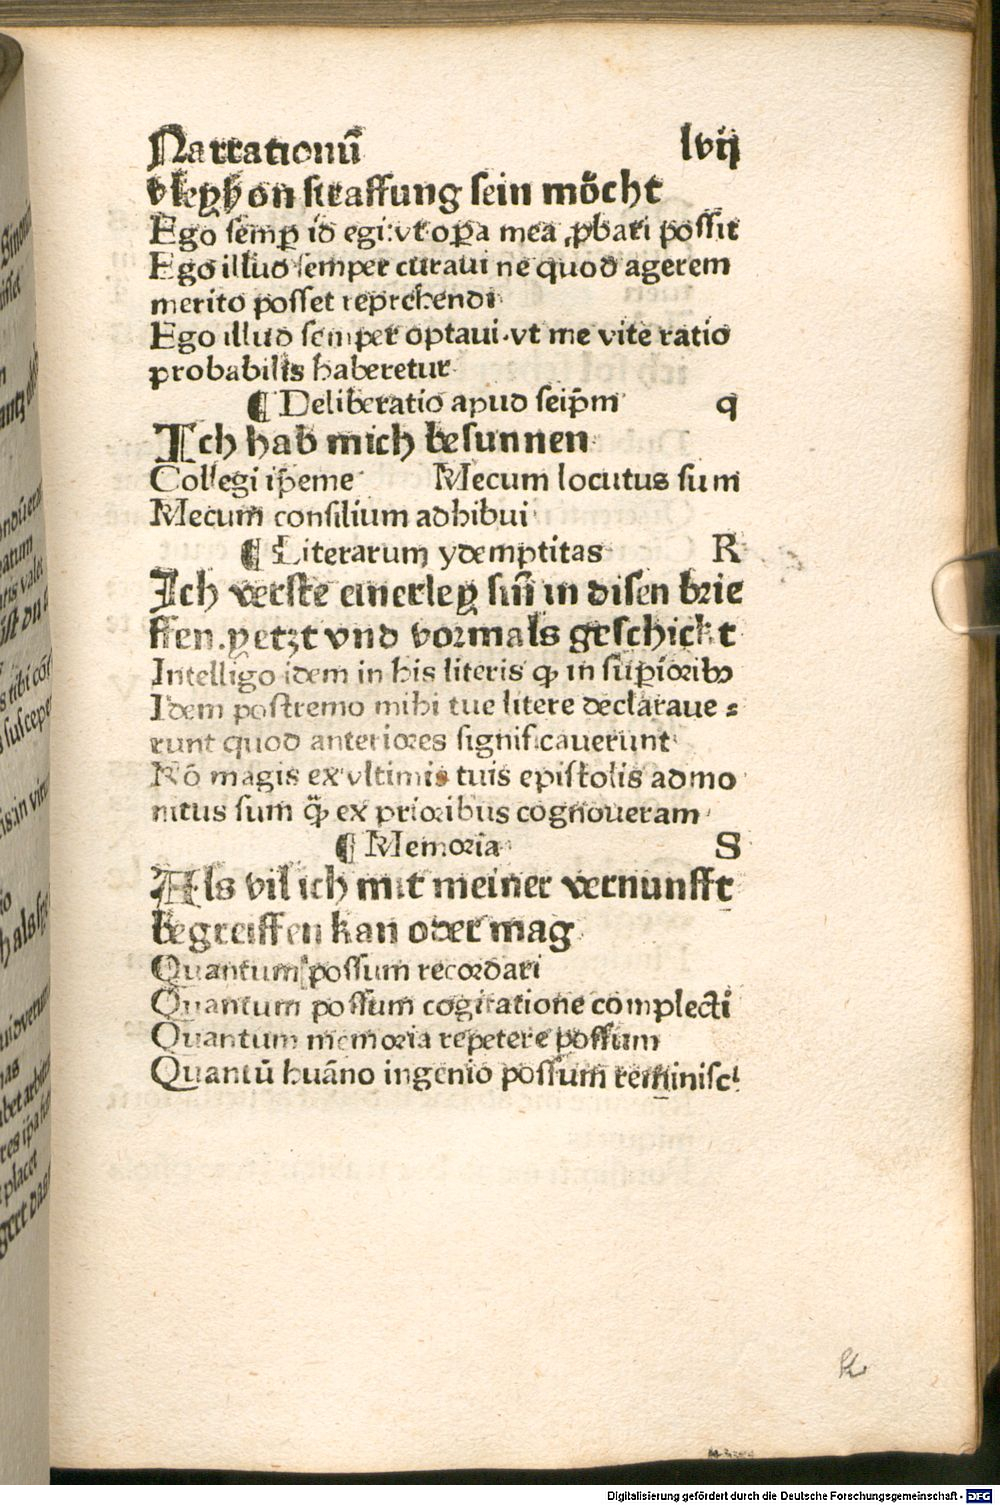 Narrationū lvij
vleyß on straffung sein möcht
Ego semꝑ id egi: vt oꝑa mea ꝓbari possit
Ego illud semper curaui ne quod agerem
merito posset reprehendi
Ego illud semper optaui. vt me vite ratio
probabilis haberetur
¶ Deliberatio apud seip̄m q
Ich hab mich besunnen
Collegi ip̄eme Mecum locutus sum
Mecum consilium adhibui
¶ Literarum ydemptitas R
Ich verste einerley siñ in disen brie
ffen. yetzt vnd vormals geschickt
Intelligo idem in his literis ꝙ in suꝑioribꝰ
Idem postremo mihi tue litere declaraue⸗
runt quod anteriores significauerunt
Nō magis ex vltimis tuis epistolis admo
nitus sum q̄ꝫ ex prioribus cognoueram
¶ Memoria S
Als vil ich mit meiner vernunfft
begreiffen kan oder mag
Quantum possum recordari
Quantum possum cogitatione complecti
Quantum memoria repetere possum
Quantū huāno ingenio possum reminisci
Digitalisierung gefördert durch die Deutsche Forschungsgemeinschaft - DFG